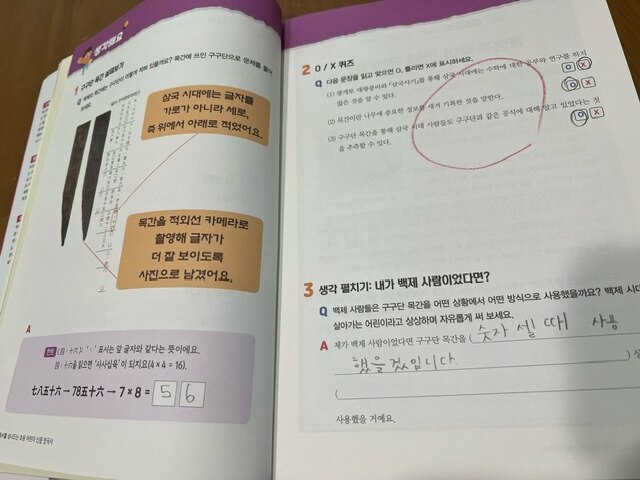 생각해요
1 구구단 목간 살펴보기
삼국 시대에는 글자를
가로가 아니라 세로,
즉 위에서 아래로 적었어요.
목간을 적외선 카메라로
촬영해 글자가
더 잘 보이도록
사진으로 남겼어요.
A
표시는 앞 글자와 같다는 뜻이에요.
십육을 읽으면 '사사십육'이 되지요(4 × 4 = 16).
七八五十六 → 78五十六 → 7 × 8 = 5 6
2 O / X 퀴즈
Q 다음 문장을 읽고 맞으면 O, 틀리면 X에 표시하세요.
(1) 광개토 대왕릉비와 『삼국사기』를 통해 삼국 시대에는 수학에 대한 공부와 연구를 하지
않은 것을 알 수 있다.
O X
(2) 목간이란 나무에 중요한 정보를 새겨 기록한 것을 말한다.
O X
(3) 구구단 목간을 통해 삼국 시대 사람들도 구구단과 같은 공식에 대해 알고 있었다는 것
을 추측할 수 있다.
O X
3 생각 펼치기: 내가 백제 사람이었다면?
Q 백제 사람들은 구구단 목간을 어떤 상황에서 어떤 방식으로 사용했을까요? 백제 시대
살아가는 어린이라고 상상하며 자유롭게 써 보세요.
A 제가 백제 사람이었다면 구구단 목간을 ( 숫자 셀 때 사용
했을겄입니다.
(
사용했을 거예요.